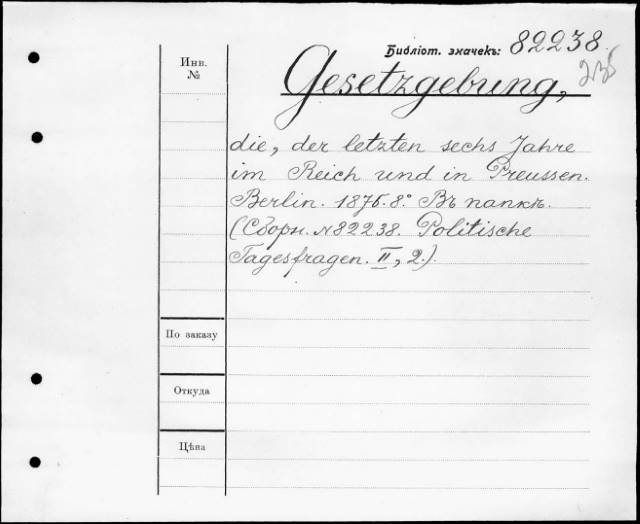 Инв.
№
Библіот. значекъ: 82238.
Gesetzgebung,
die, der letzten sechs Jahre
im Reich und in Preussen.
Berlin. 1876. 8°. Въ папкѣ.
(Сборн. №82238. Politische
Tagesfragen. II, 2.).
По заказу
Откуда
Цѣна